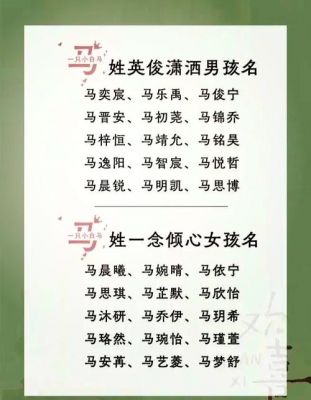 马 姓英俊潇洒男孩名
一只小白马
马奕宸、马乐禹、马俊宁
马晋安、马初荛、马锦乔
马梓恒、马靖允、马铭昊
马逸阳、马智宸、马悦哲
马晨锐、马明凯、马思博
马 姓一念倾心女孩名
一只小白马
马晨曦、马婉晴、马依宁
马思琪、马芷默、马欣怡
马沐研、马乔伊、马玥希
马珞然、马琬怡、马瑾萱
马安苒、马艺菱、马梦舒
欢
AN
XI
喜